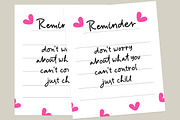 Reminde
don't wo
about wha
can't co
just ch
Reminder
don't worry
about what you
can't control
just chill